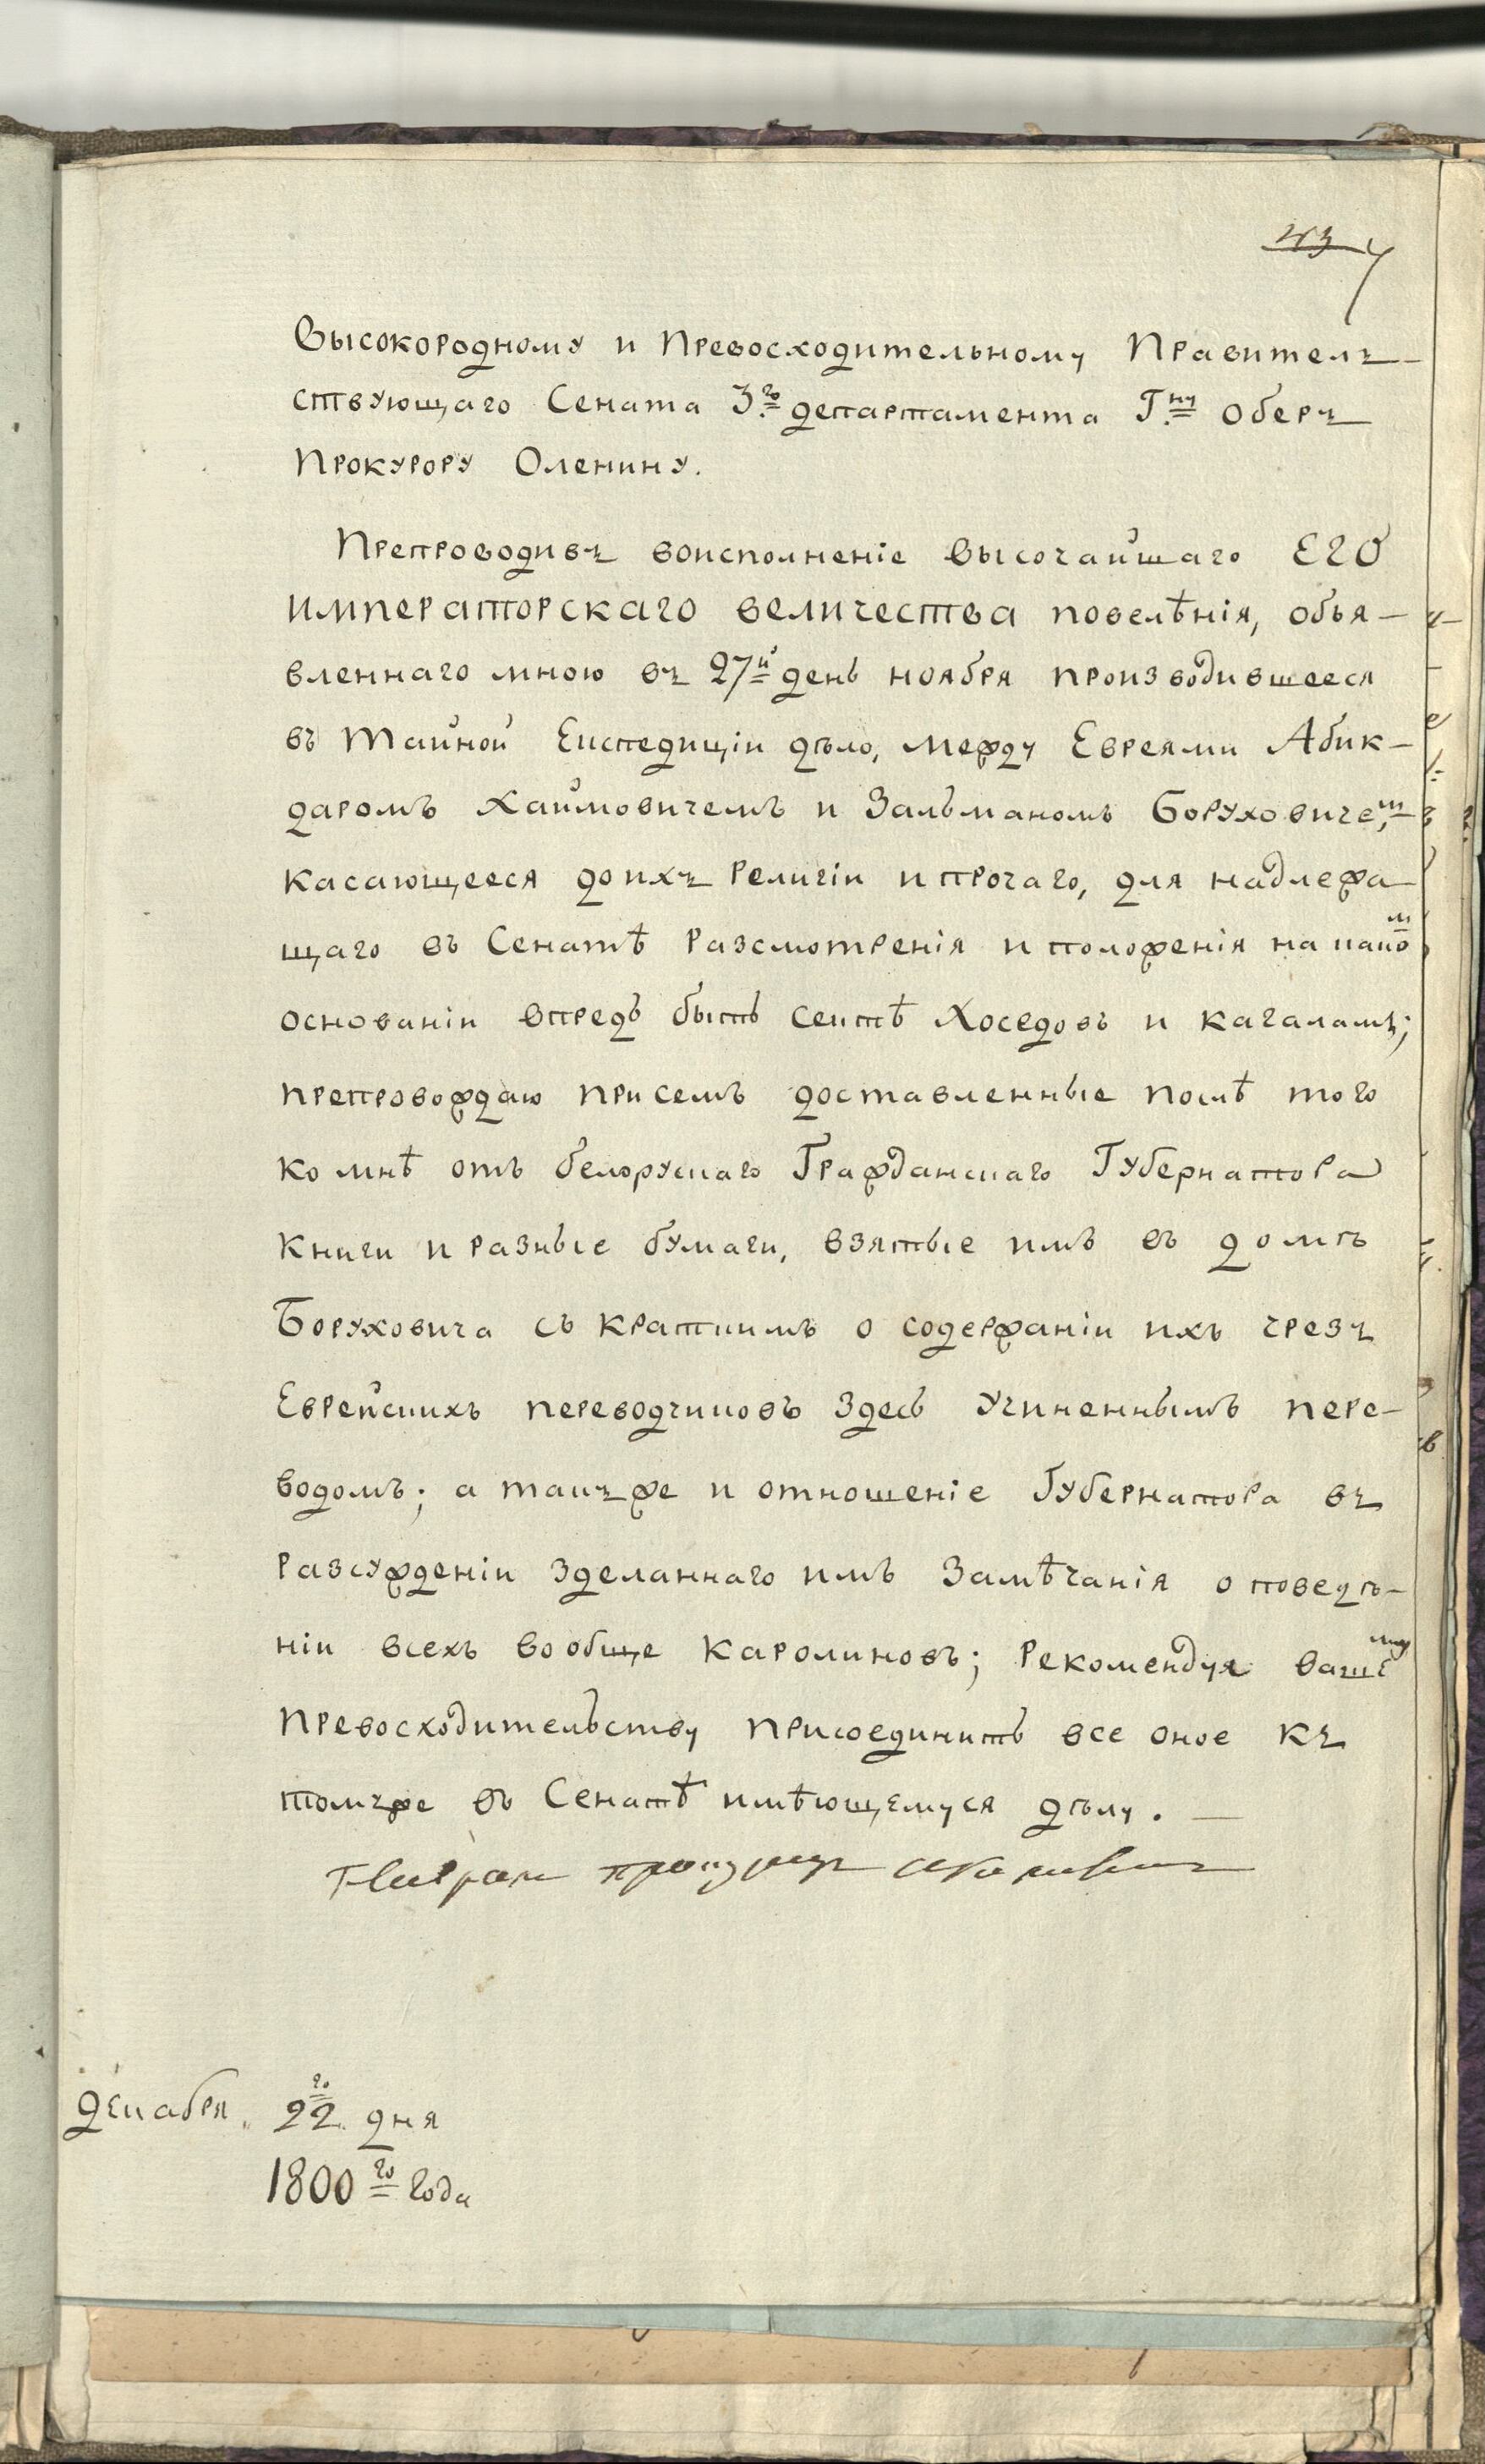 43 4
Высокородному и Превосходительному Правитель-
ствующаго Сената 3.го департамента Г.ну Оберъ
Прокурору Оленину.
Препроводивъ воисполненіе высочайшаго ЕГО
императорскаго величества повелѣнія, объя-
вленнаго мною въ 27й день ноября производившееся
въ тайной Експедиціи дѣло, между Евреями Абик-
даромъ Хаимовичемъ и Зальманомъ Боруховичем,
касающееся доихъ Религіи ипрочаго, для надлежа-
щаго въ Сенатѣ Разсмотренія и положенія на каком
основаніи впредь быть сектѣ Хоседовъ и кагаламъ;
препровождаю присемъ доставленные послѣ того
ко мнѣ отъ белорускаго Гражданскаго Губернатора
книги и разные бумаги, взятые имъ въ домѣ
Боруховича съ краткимъ о содержаніи ихъ чрезъ
Еврейскихъ переводчиковъ здесь учиненнымъ пере-
водомъ; а такъже и отношеніе Губернатора въ
Разсужденіи зделаннаго имъ Замѣчанія о поведѣ-
ніи всехъ вообще Каролиновъ; Рекомендуя вашему
Превосходительству присоединить все оное къ
томуже въ Сенатѣ имѣющемуся дѣлу. —
Генерал прокурор
Декабря 22.го дня
1800го года